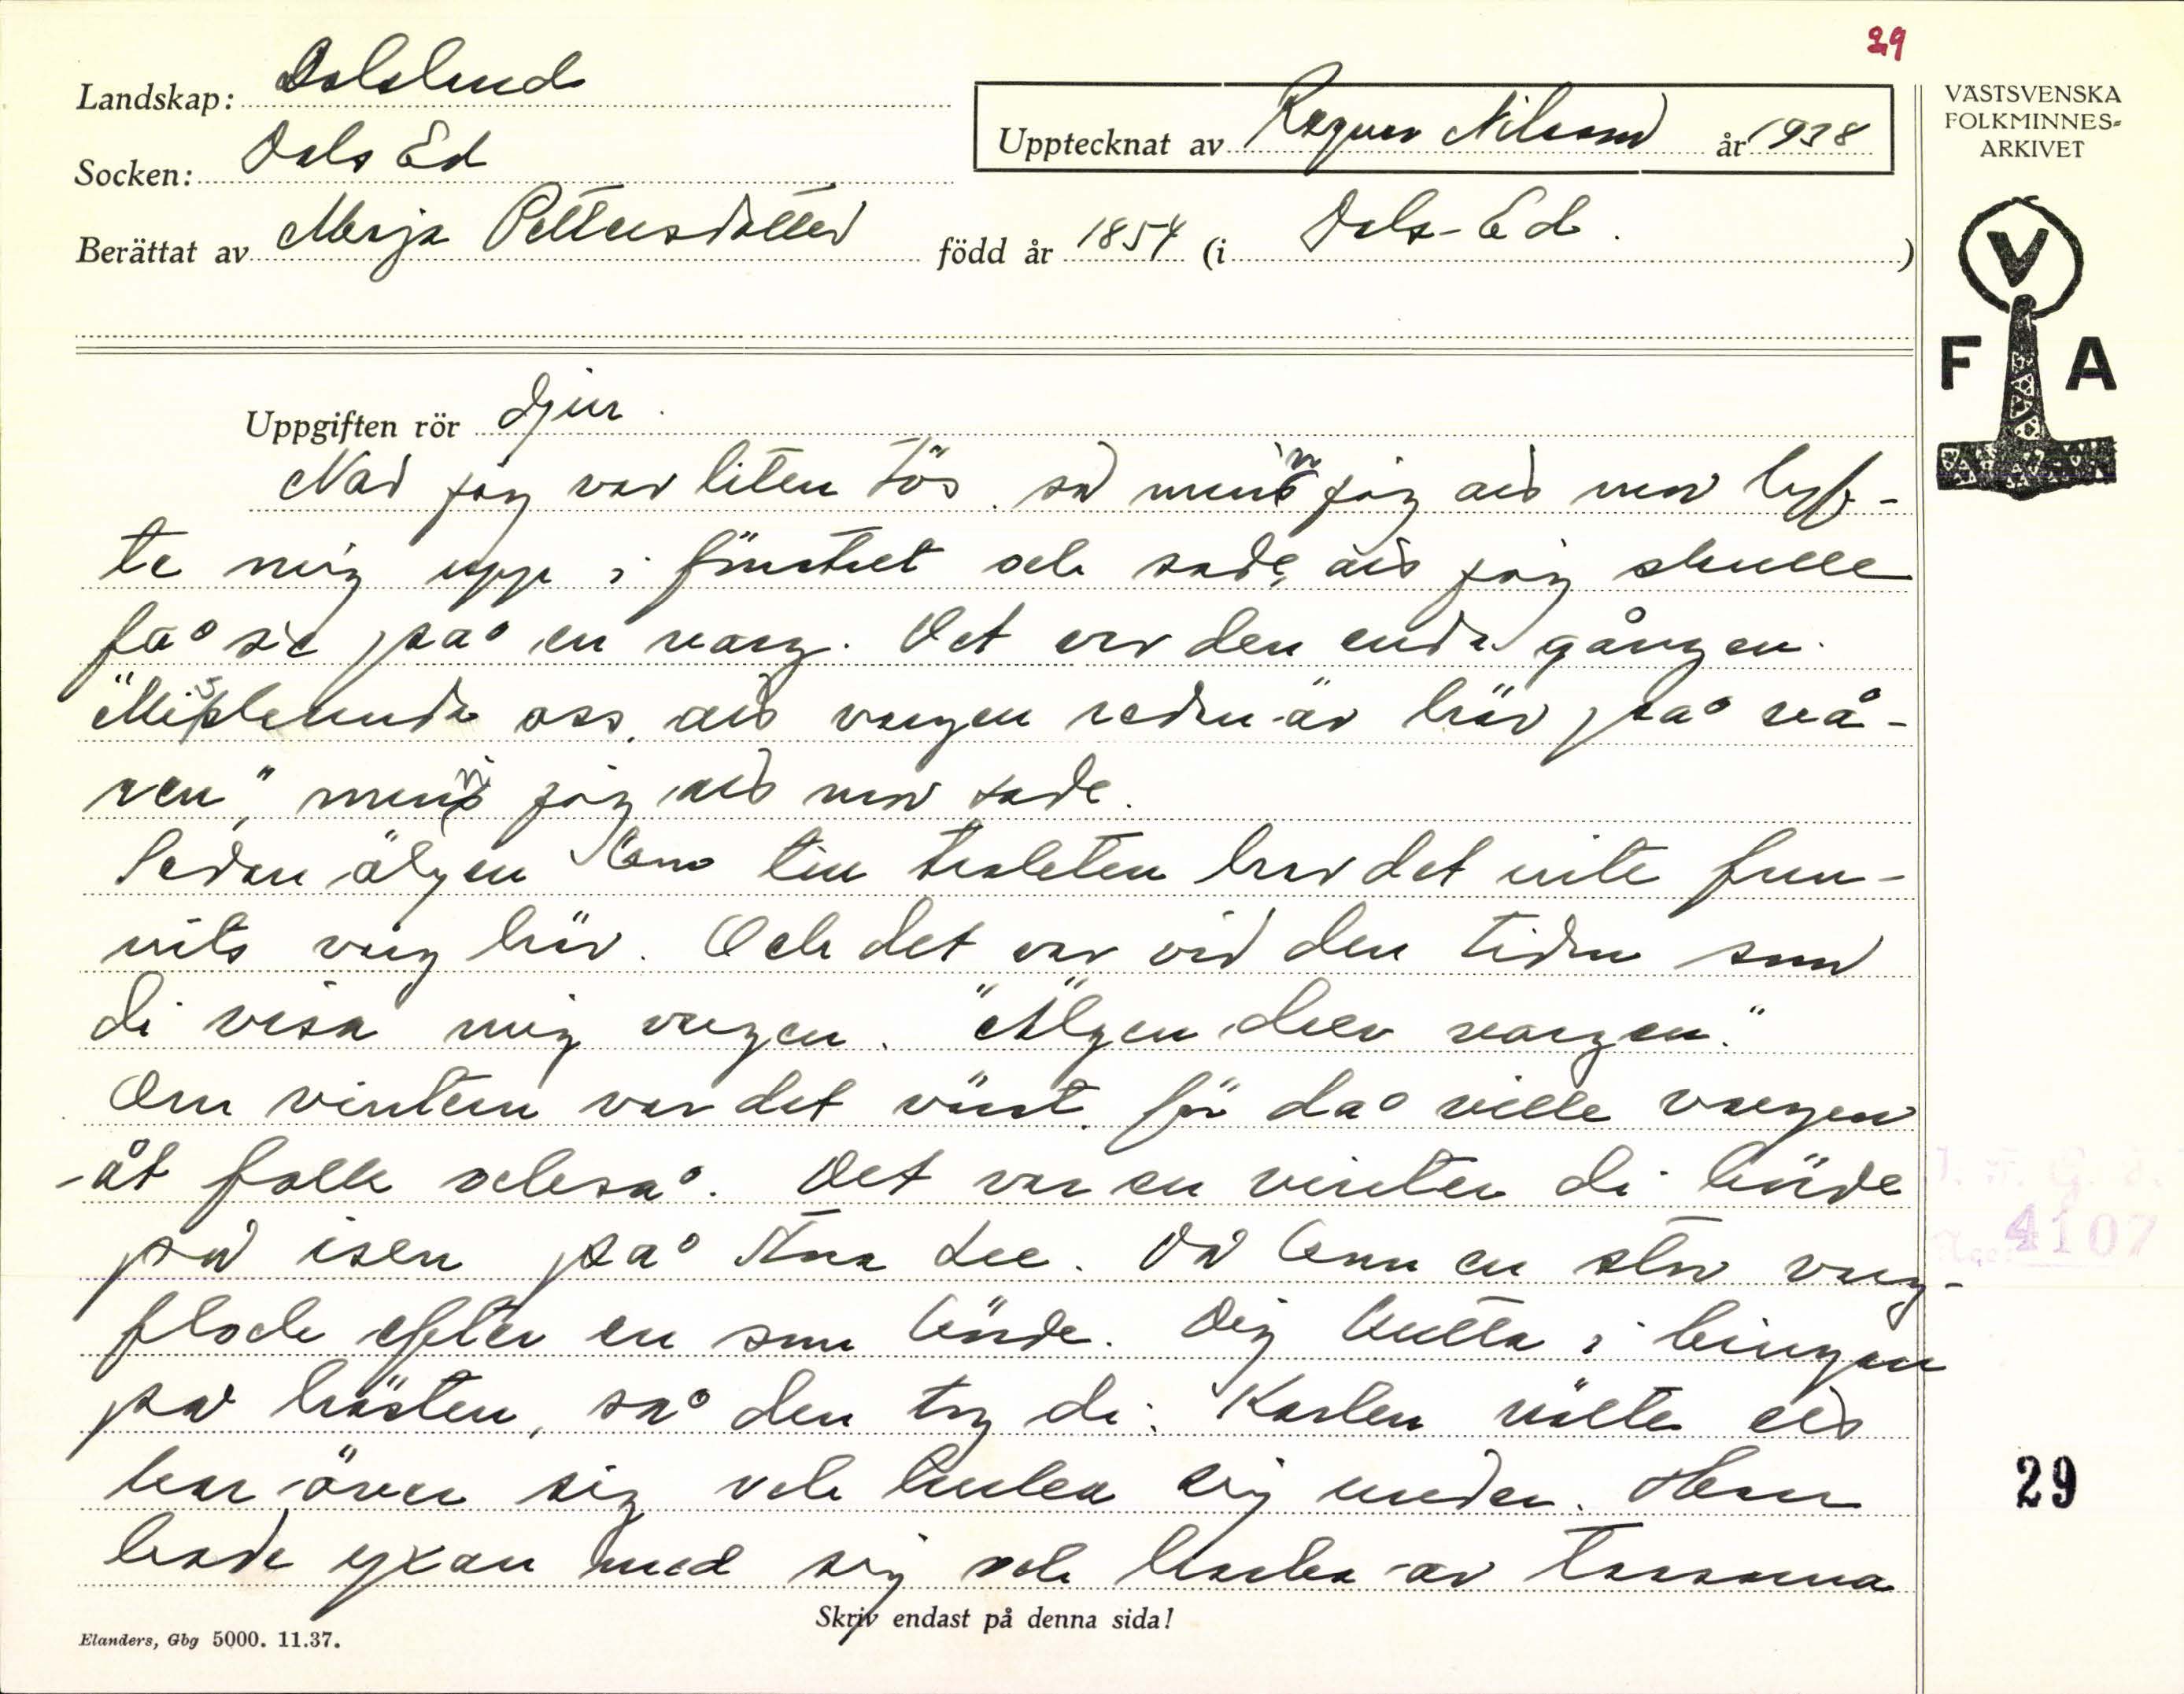 29
Landskap: Dalsland
Socken: Dals Ed
Upptecknat av Ragnar Nilsson år 1938
Berättat av Maja Pettersdotter född år 1854 (i Dals-Ed.)
VÄSTSVENSKA
FOLKMINNES-
ARKIVET
V
F A
Uppgiften rör djur.
När jag var liten tös, så minns jag att mor lyf-
te mig upp i fönstret och sade, att jag skulle
få se på en varg. Det var den enda gången.
"Miskunda oss, att vargen redan är här på vå-
ren", minns jag att mor sade.
Sedan älgen kom till trakten har det inte fun-
nits varg här. Och det var vid den tiden som
di visa mig vargen. "Älgen drev vargen."
Om vintern var det värst, för då ville vargen
åt folk också. Det var en vinter di körde
på isen på Stora Lee. Då kom en stor varg-
flock efter en som körde. Dig hutta i bringan
på hästen, så den tog di. Karlen välte ett
kar över sig och hulka sig under. Han
hade yxan med sig och hacka av tassarna
4107
29
Skriv endast på denna sida!
Elanders, Gbg 5000. 11.37.